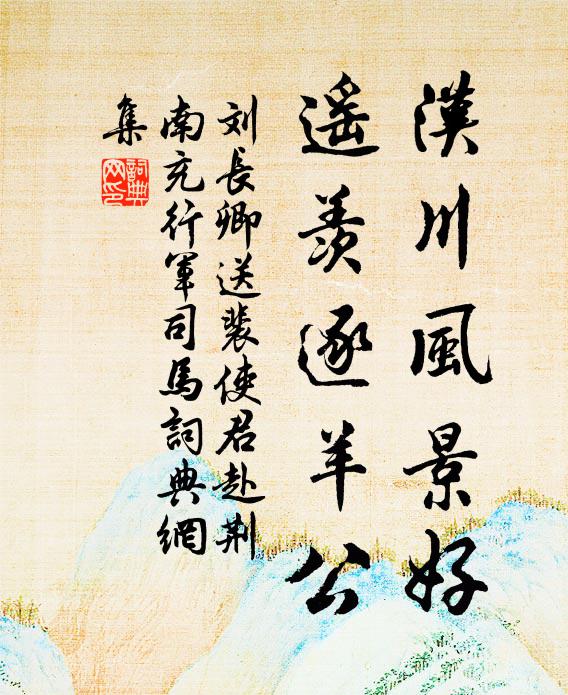 漢川風景好
遥羨逐羊公
刘長卿送裴使君赴荆
南充行軍司馬詞典網
集
詞典
网印